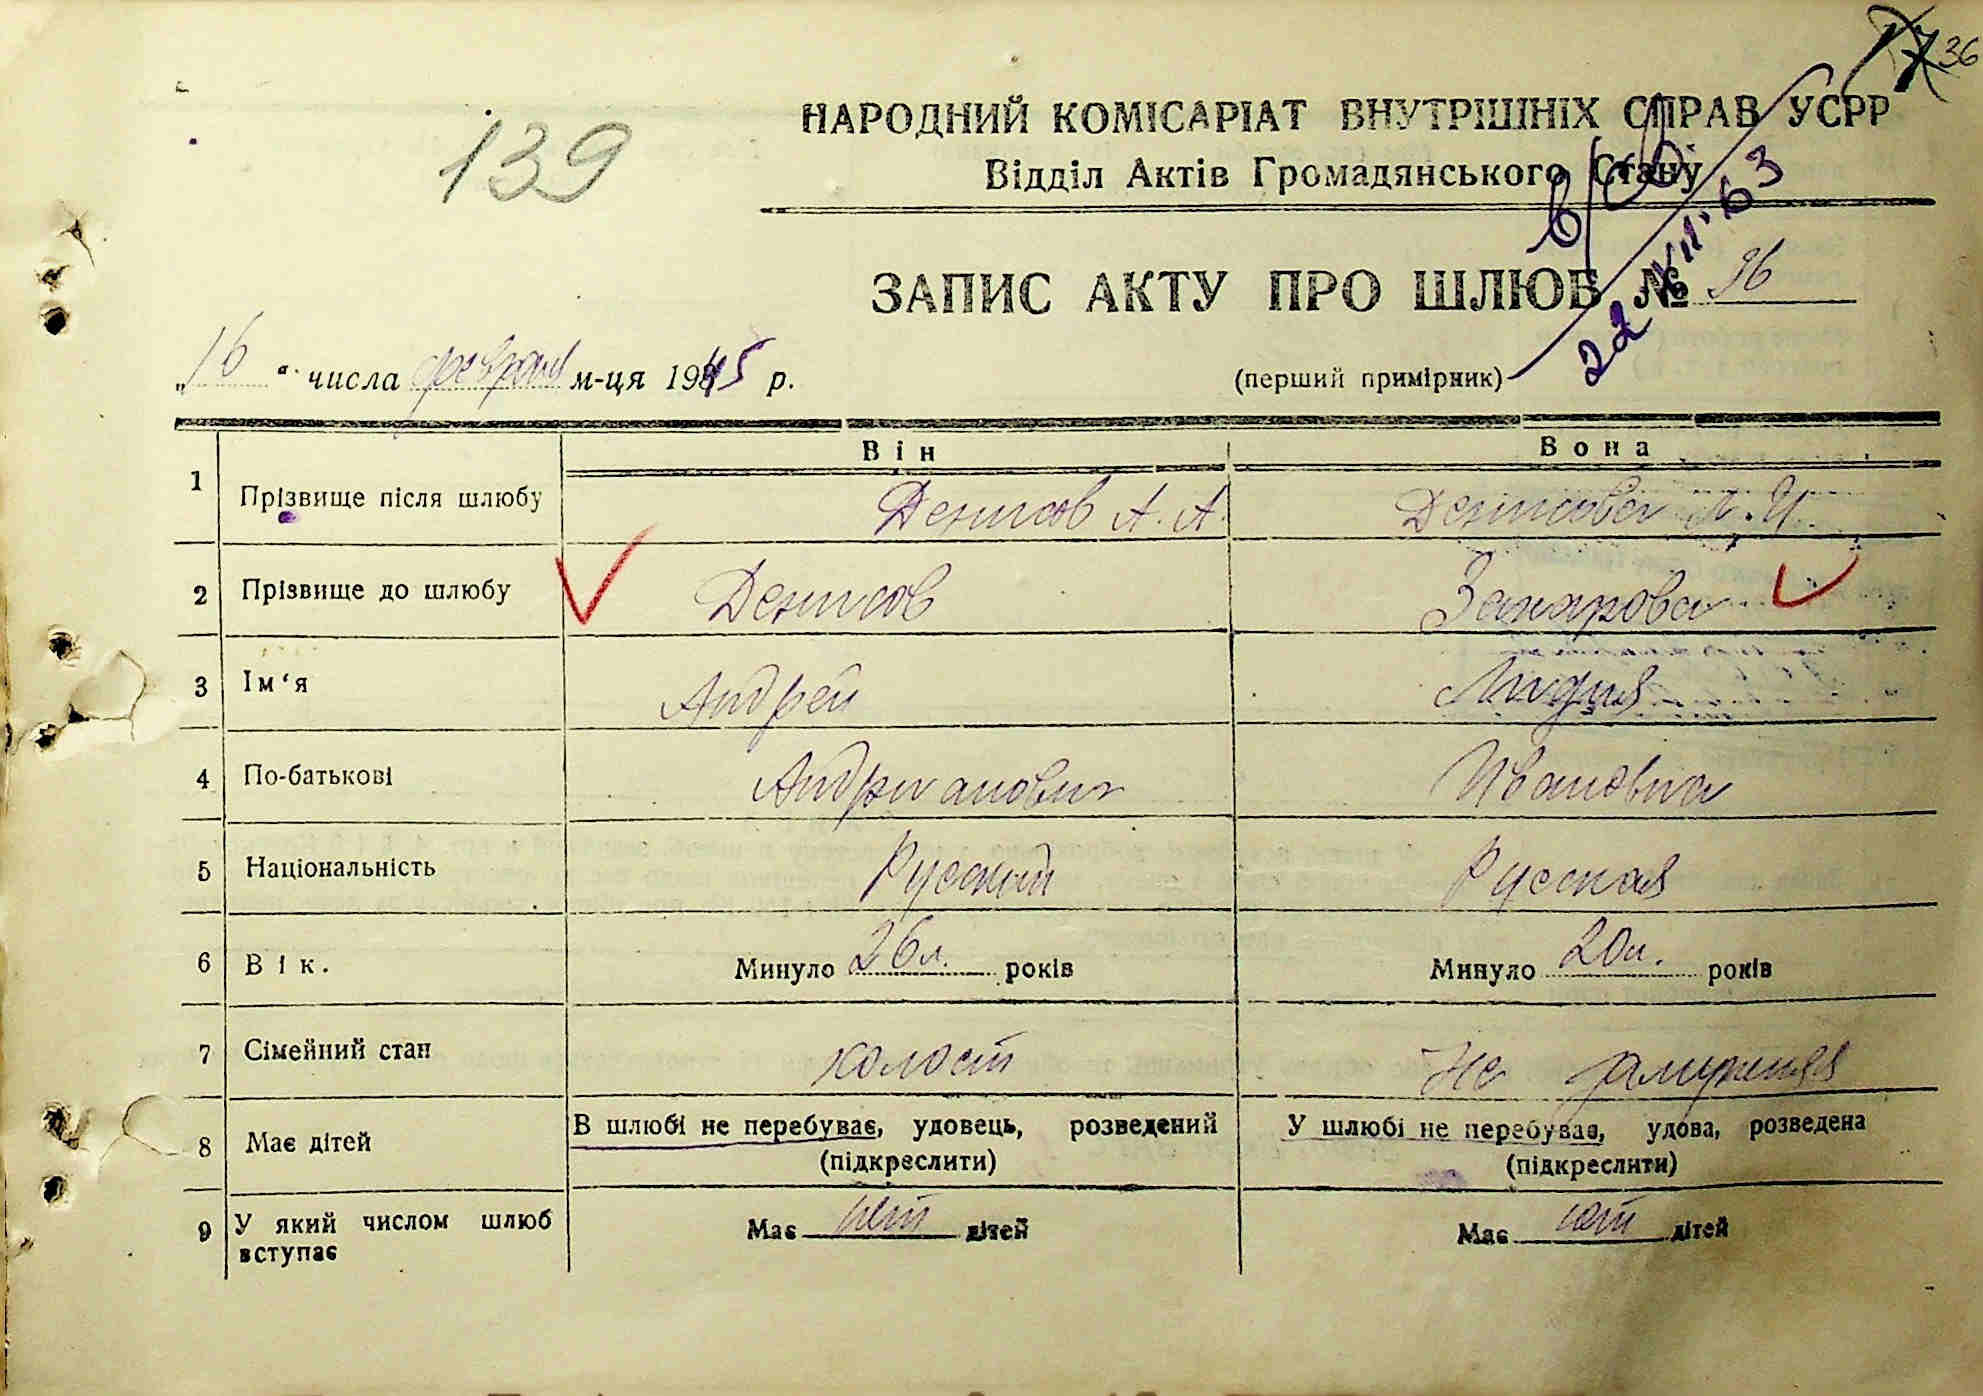 36
139
НАРОДНИЙ КОМІСАРІАТ ВНУТРІШНІХ СПРАВ УСРР
Відділ Актів Громадянського Стану
22 XII 63
ЗАПИС АКТУ ПРО ШЛЮБ № 96
„16“ числа февраля м-ця 1945 р.
(перший примірник)
Він Вона
1 Прізвище після шлюбу Денисов А. А. Денисова Л. И.
2 Прізвище до шлюбу Денисов Захарова
3 Ім‘я Андрей Лидия
4 По-батькові Андрианович Ивановна
5 Національність Русский Русская
6 Вік. Минуло 26 л. років Минуло 20 л. років
7 Сімейний стан холост Не замужняя
8 Має дітей В шлюбі не перебуває, удовець, розведений У шлюбі не перебуває, удова, розведена
(підкреслити) (підкреслити)
9 У який числом шлюб вступає Має нет дітей Має нет дітей